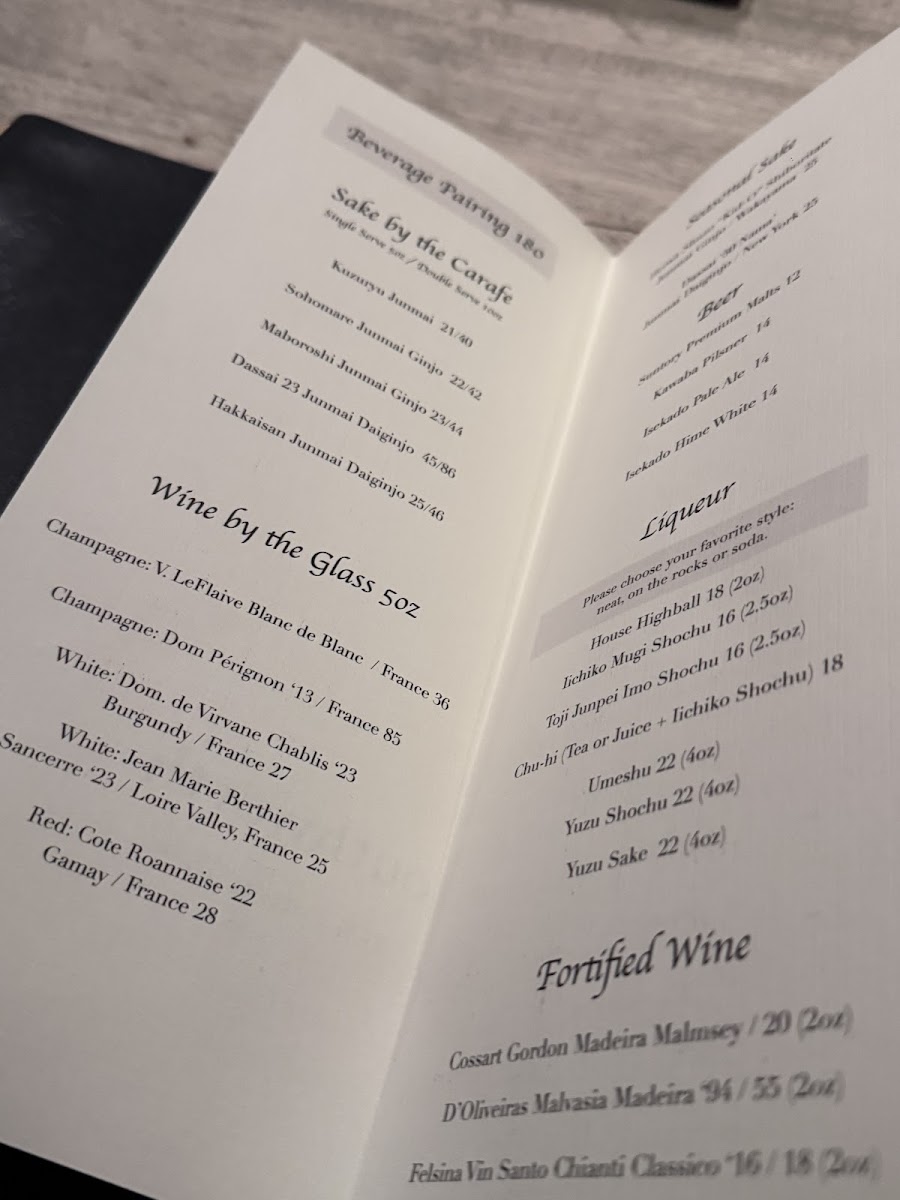 Beverage Pairing 180
Sake by the Carafe
Single Serve 5oz / Double Serve 10oz
Kuzuryu Junmai 21/40
Sohomare Junmai Ginjo 22/42
Maboroshi Junmai Ginjo 23/44
Dassai 23 Junmai Daiginjo 45/86
Hakkaisan Junmai Daiginjo 25/46
Wine by the Glass 5oz
Champagne: V. LeFlaive Blanc de Blanc / France 36
Champagne: Dom Pérignon ‘13 / France 85
White: Dom. de Virvane Chablis ‘23
Burgundy / France 27
White: Jean Marie Berthier
Sancerre ‘23 / Loire Valley, France 25
Red: Cote Roannaise ‘22
Gamay / France 28
Seasonal Sake
Shiboritate
Junmai Ginjo / Wakayama 25
Dassai
Junmai Daiginjo / New York 25
Beer
Suntory Premium Malts 12
Kawaba Pilsner 14
Isekado Pale Ale 14
Isekado Hime White 14
Liqueur
Please choose your favorite style:
neat, on the rocks or soda.
House Highball 18 (2oz)
Iichiko Mugi Shochu 16 (2.5oz)
Toji Junpei Imo Shochu 16 (2.5oz)
Chu-hi (Tea or Juice + Iichiko Shochu) 18
Umeshu 22 (4oz)
Yuzu Shochu 22 (4oz)
Yuzu Sake 22 (4oz)
Fortified Wine
Cossart Gordon Madeira Malmsey / 20 (2oz)
D’Oliveiras Malvasia Madeira ‘94 / 55 (2oz)
Felsina Vin Santo Chianti Classico ‘16 / 18 (2oz)